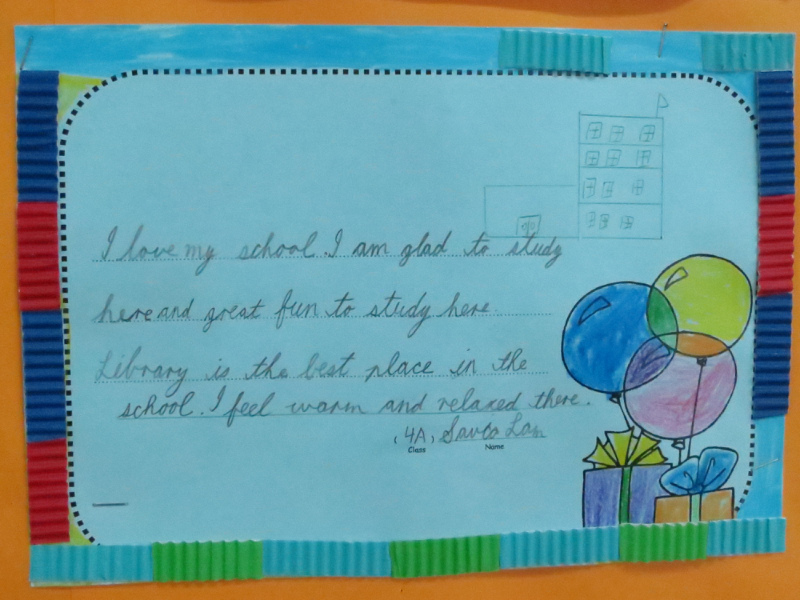 I love my school. I am glad to study
here and great fun to study here.
Library is the best place in the
school. I feel warm and relaxed there.
(4A) Lam
Class Name